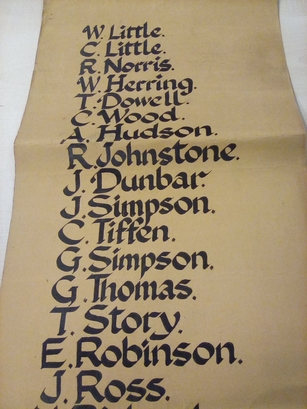 W. Little.
C. Little.
R. Norris.
W. Herring.
T. Dowell.
C. Wood.
A. Hudson.
R. Johnstone.
J. Dunbar.
J. Simpson.
C. Tiffen.
G. Simpson.
G. Thomas.
T. Story.
E. Robinson.
J. Ross.